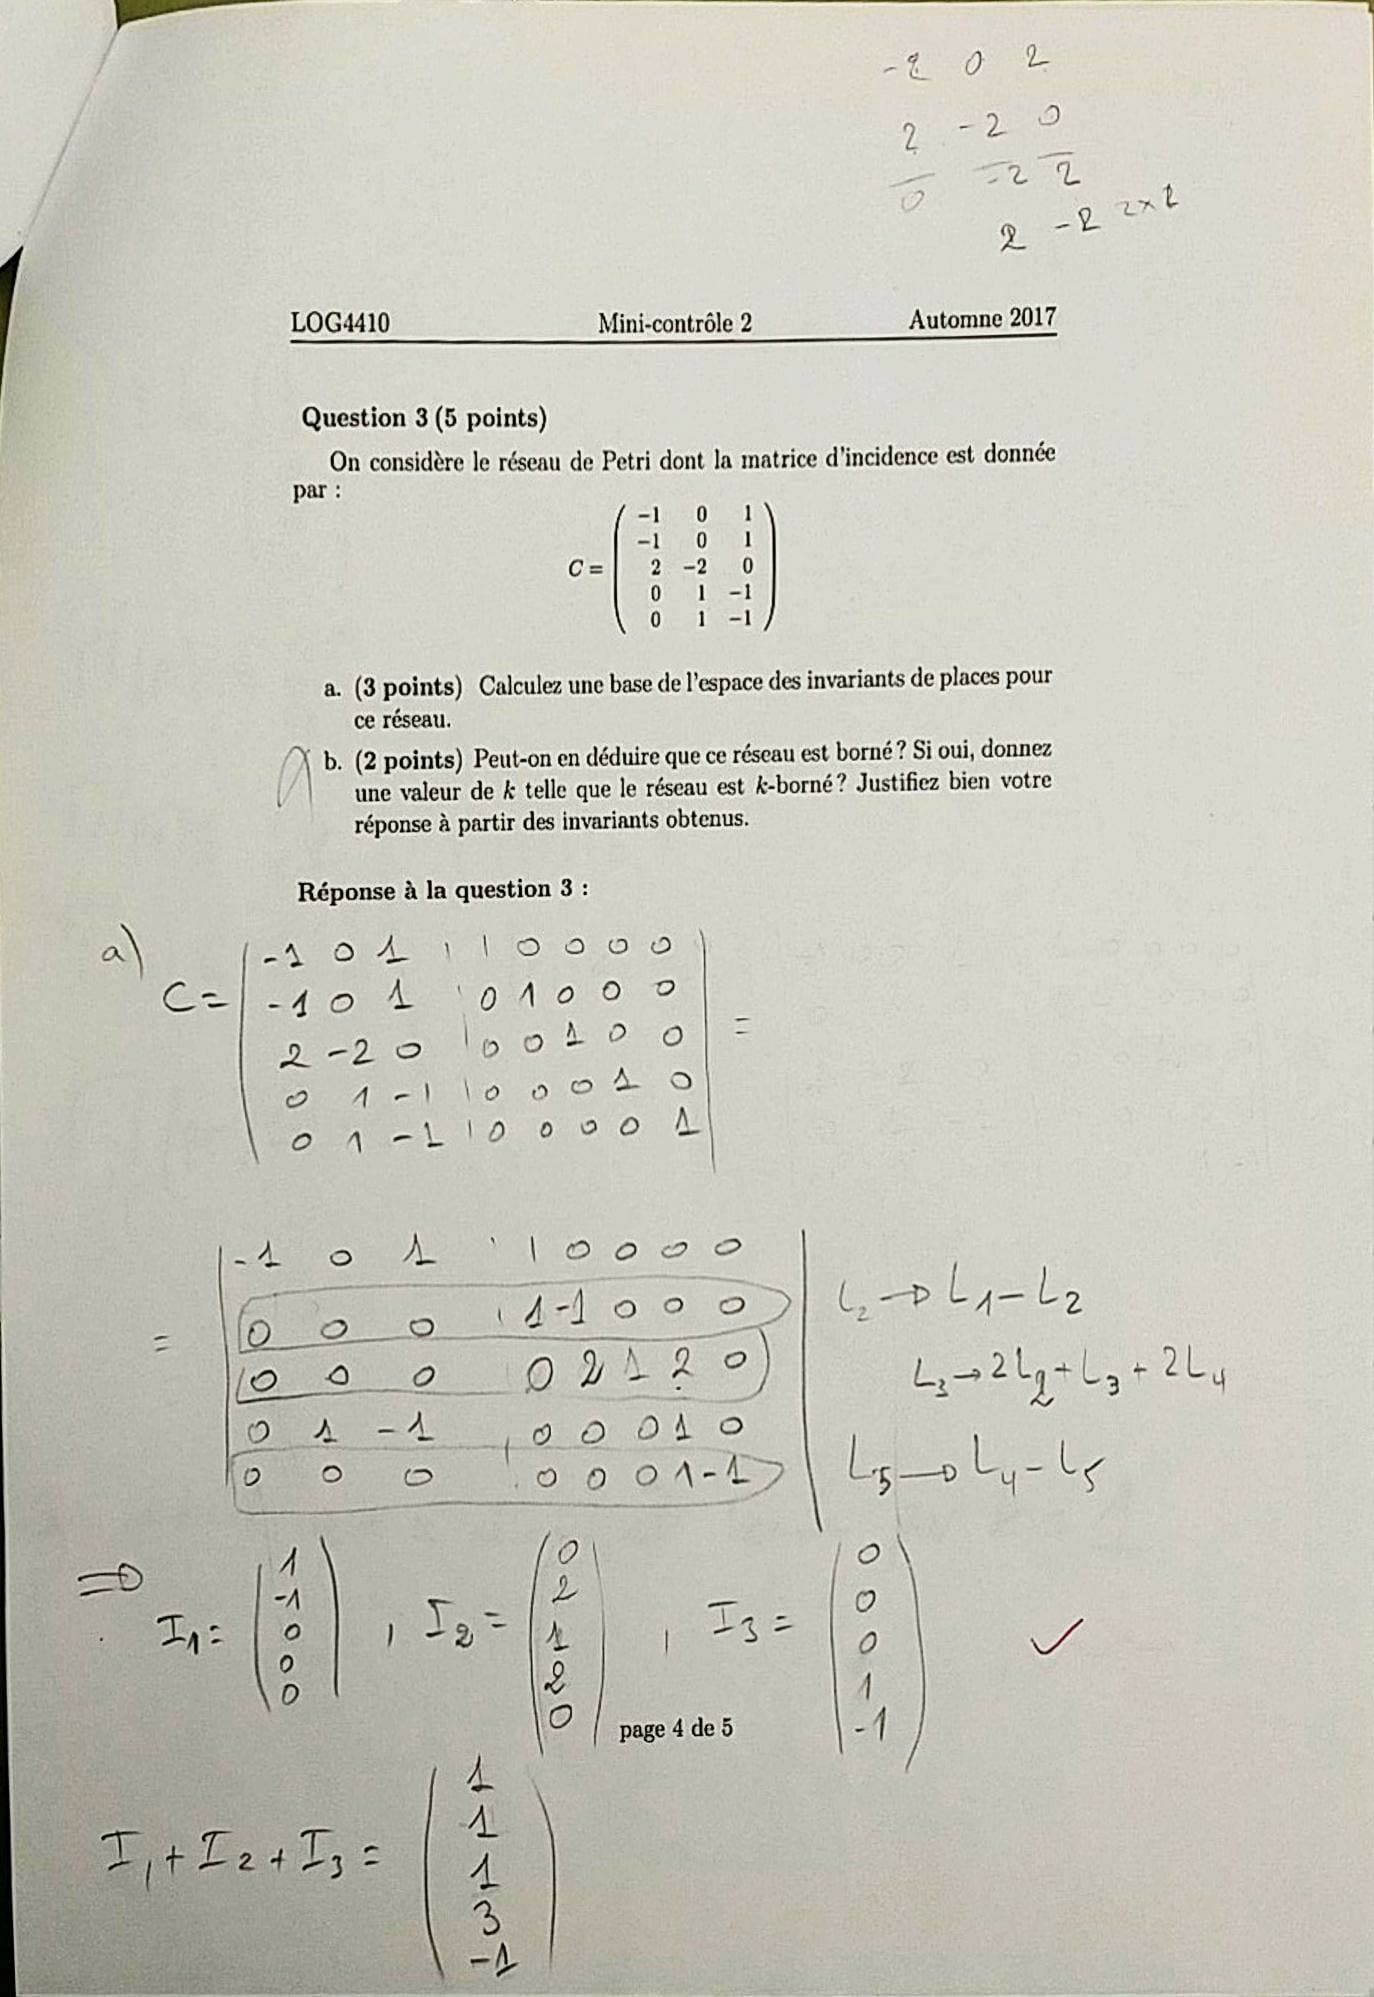 -2 0 2
2 -2 0
0 -2 2
2 -2 2×2
LOG4410 Mini-contrôle 2 Automne 2017
Question 3 (5 points)
On considère le réseau de Petri dont la matrice d'incidence est donnée
par :
-1 0 1
-1 0 1
C = 2 -2 0
0 1 -1
0 1 -1
a. (3 points) Calculez une base de l'espace des invariants de places pour
ce réseau.
b. (2 points) Peut-on en déduire que ce réseau est borné ? Si oui, donnez
une valeur de k telle que le réseau est k-borné ? Justifiez bien votre
réponse à partir des invariants obtenus.
Réponse à la question 3 :
a)
-1 0 1 | 1 0 0 0 0
C = -1 0 1 | 0 1 0 0 0
2 -2 0 | 0 0 1 0 0 =
0 1 -1 | 0 0 0 1 0
0 1 -1 | 0 0 0 0 1
-1 0 1 | 1 0 0 0 0
0 0 0 | 1 -1 0 0 0 L2 → L1 - L2
= 0 0 0 0 2 1 2 0 L3 → 2L2 + L3 + 2L4
0 1 -1 | 0 0 0 1 0
0 0 0 | 0 0 0 1 -1 L5 → L4 - L5
⇒
I1 = (1 -1 0 0 0), I2 = (0 2 1 2 0), I3 = (0 0 0 1 -1) ✓
page 4 de 5
I1 + I2 + I3 = (1 1 1 3 -1)